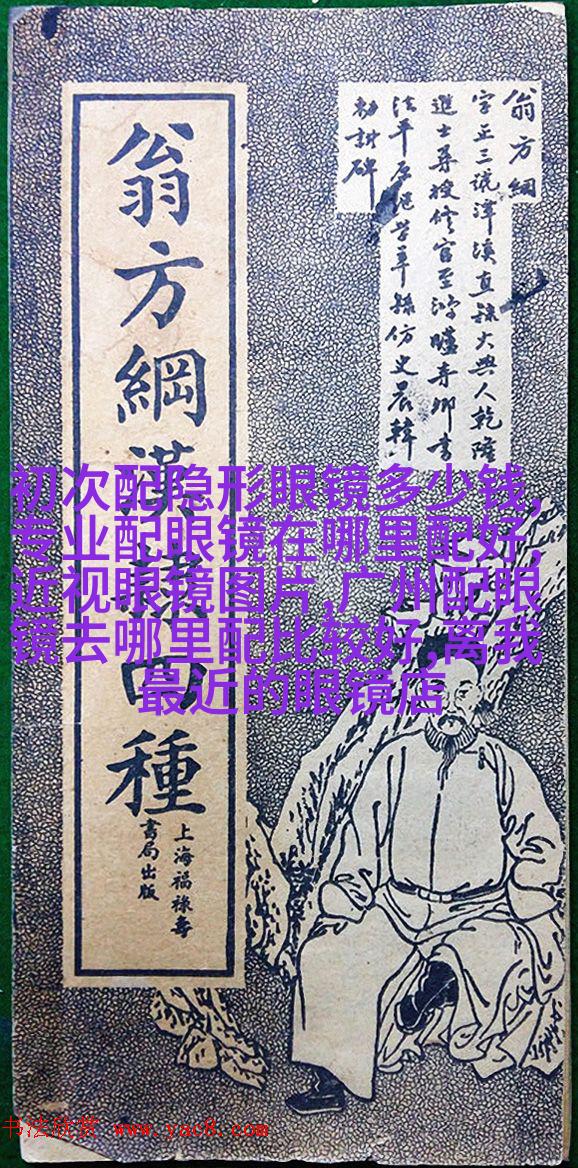 翁方綱
字正三號潭溪直隸大興人乾隆
進士 授 官至鴻臚寺卿書
法平原 仿史晨韓
勅封碑
翁方綱漢隸四種
上海福祿壽
書局出版
初次配隐形眼镜多少钱,
专业配眼镜在哪里配好,
近视眼镜图片,广州配眼
镜去哪里配比较好,离我
最近的眼镜店
书法欣赏 www.yac8.com